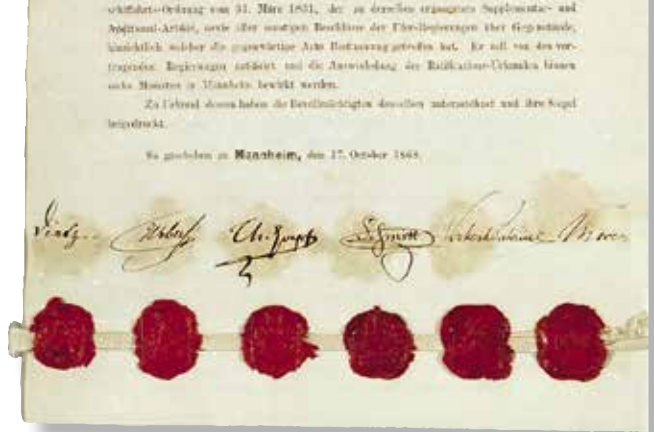 schifffahrts-Ordnung vom 31. März 1831, der zu derselben ergangenen Supplementar- und
Additional-Artikel, sowie aller sonstigen Beschlüsse der Ufer-Regierungen über Gegenstände,
hinsichtlich welcher die gegenwärtige Acte Bestimmung getroffen hat. Er soll von den ver-
Regierungen und die Auswechslung der Ratifications-Urkunden binnen
sechs Monaten in Mannheim bewirkt werden.
Zu Urkund dessen haben die Bevollmächtigten denselben unterzeichnet und ihre Siegel
beigedruckt.
So geschehen zu Mannheim, den 17. October 1868.
Schmitt